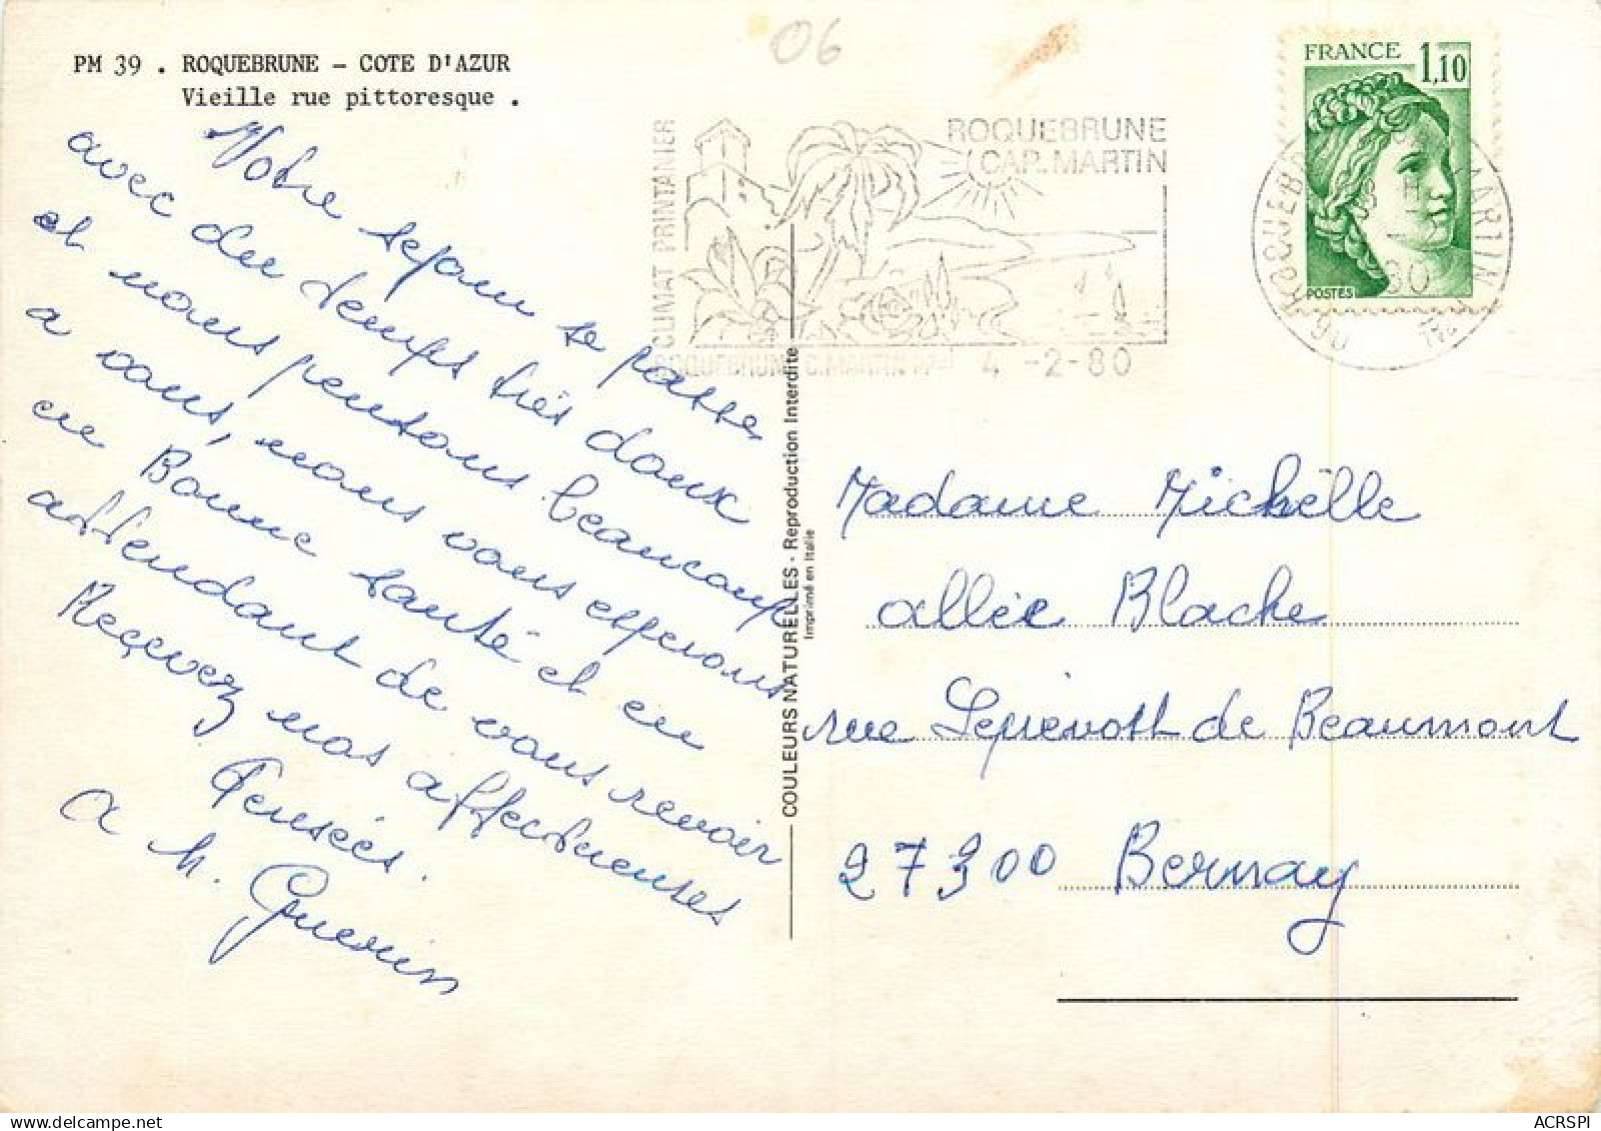 PM 39 . ROQUEBRUNE - COTE D'AZUR
Vieille rue pittoresque .
06
Notre sejour se passe
avec du temps très doux
et nous pensons beaucoup
a vous, nous vous esperons
en Bonne santé et en
attendant de vous revoir
Recevez nos affectueuses
Pensées.
a M. Guerin
CLIMAT PRINTANIER
ROQUEBRUNE
CAP. MARTIN
ROQUEBRUNE C. MARTIN Ppal
4 -2-80
FRANCE 1,10
POSTES
COULEURS NATURELLES - Reproduction Interdite
Imprimé en Italie
Madame Michèlle
allée Blache
rue Leprevost de Beaumont
27300 Bernay
ACRSPI